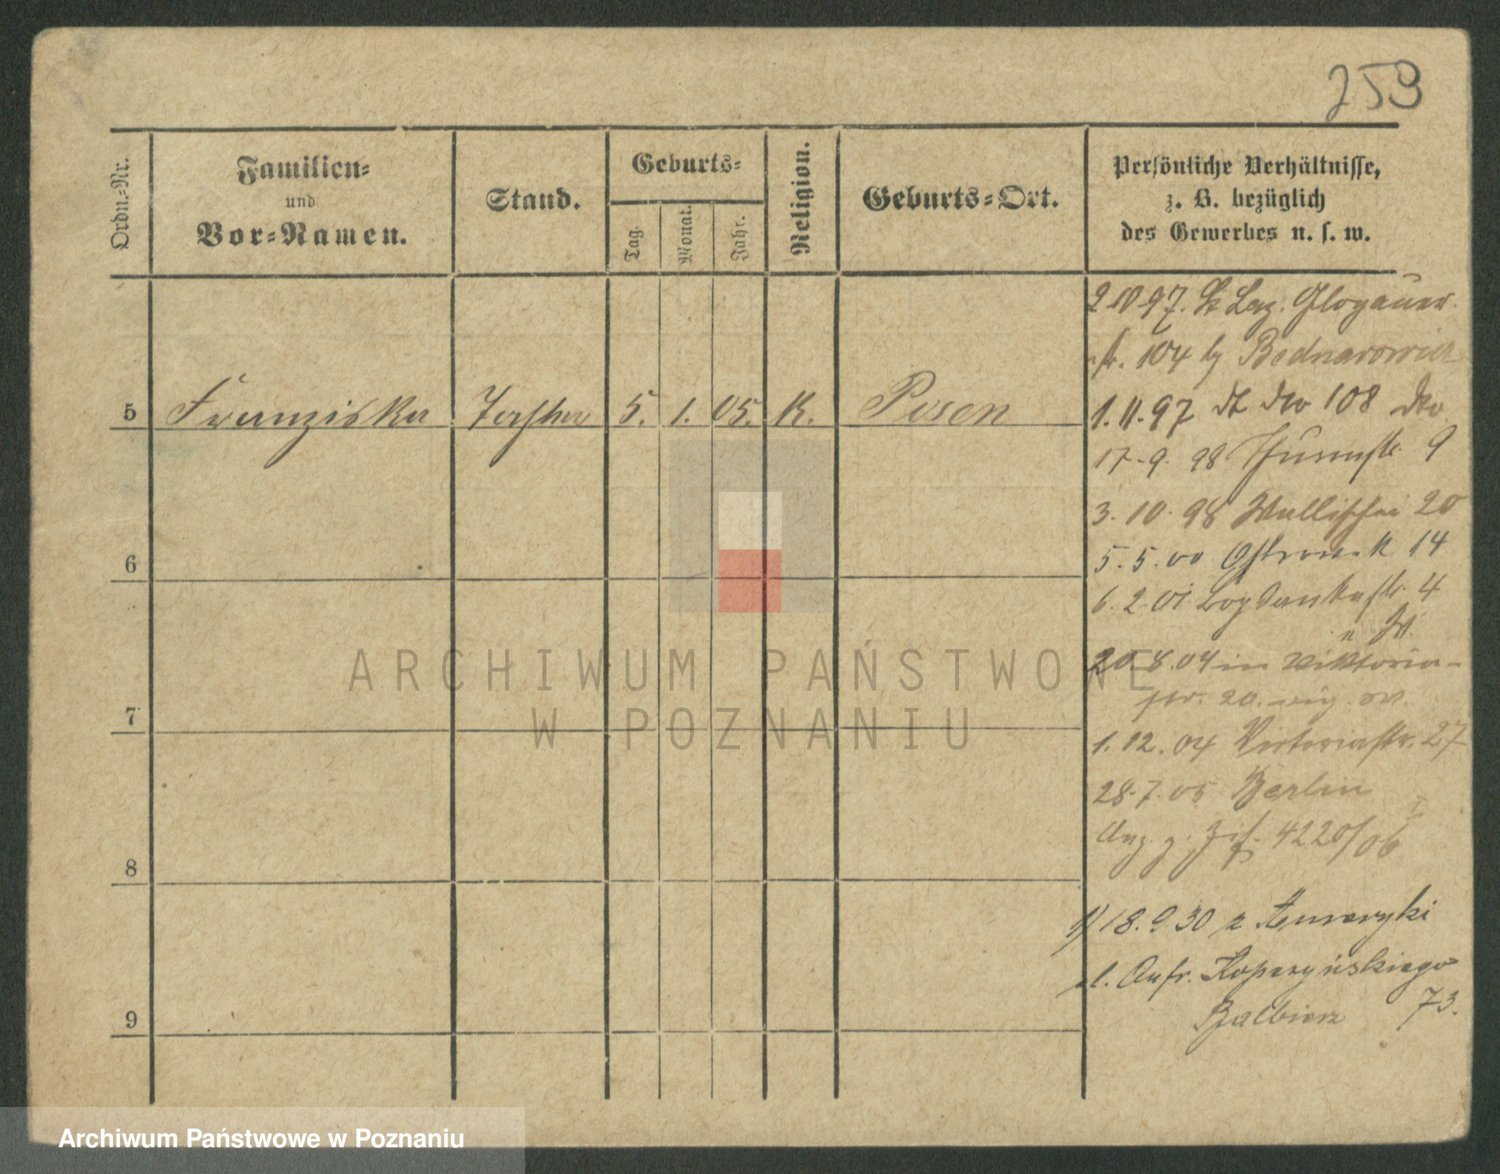 253
Ordn.-Nr.
Familien-
und
Vor-Namen.
Stand.
Geburts-
Tag.
Monat.
Jahr.
Religion.
Geburts-Ort.
Persönliche Verhältnisse,
z. B. bezüglich
des Gewerbes u. s. w.
2 10 97. St Laz. Glogauer
str. 104 by Bednarowicz
5 Franziska Tochter 5. 1. 05. K. Posen
1. 11. 97 dt dto 108 dto
17. 9. 98 Thurmstr. 9
3. 10. 98 Wallischei 20
5. 5. 00 Ostrowek 14
6
6. 2. 01 Bogdankastr. 4
20. 8. 04 in Viktoria-
str. 20.
7
1. 12. 04 Victoriastr. 27
28. 7. 05 Berlin
4220/06
8
1) 18. 9. 30 z Ameryki
Kopczyńskiego
Balbierz 73.
9
ARCHIWUM PAŃSTWOWE
W POZNANIU
Archiwum Państwowe w Poznaniu